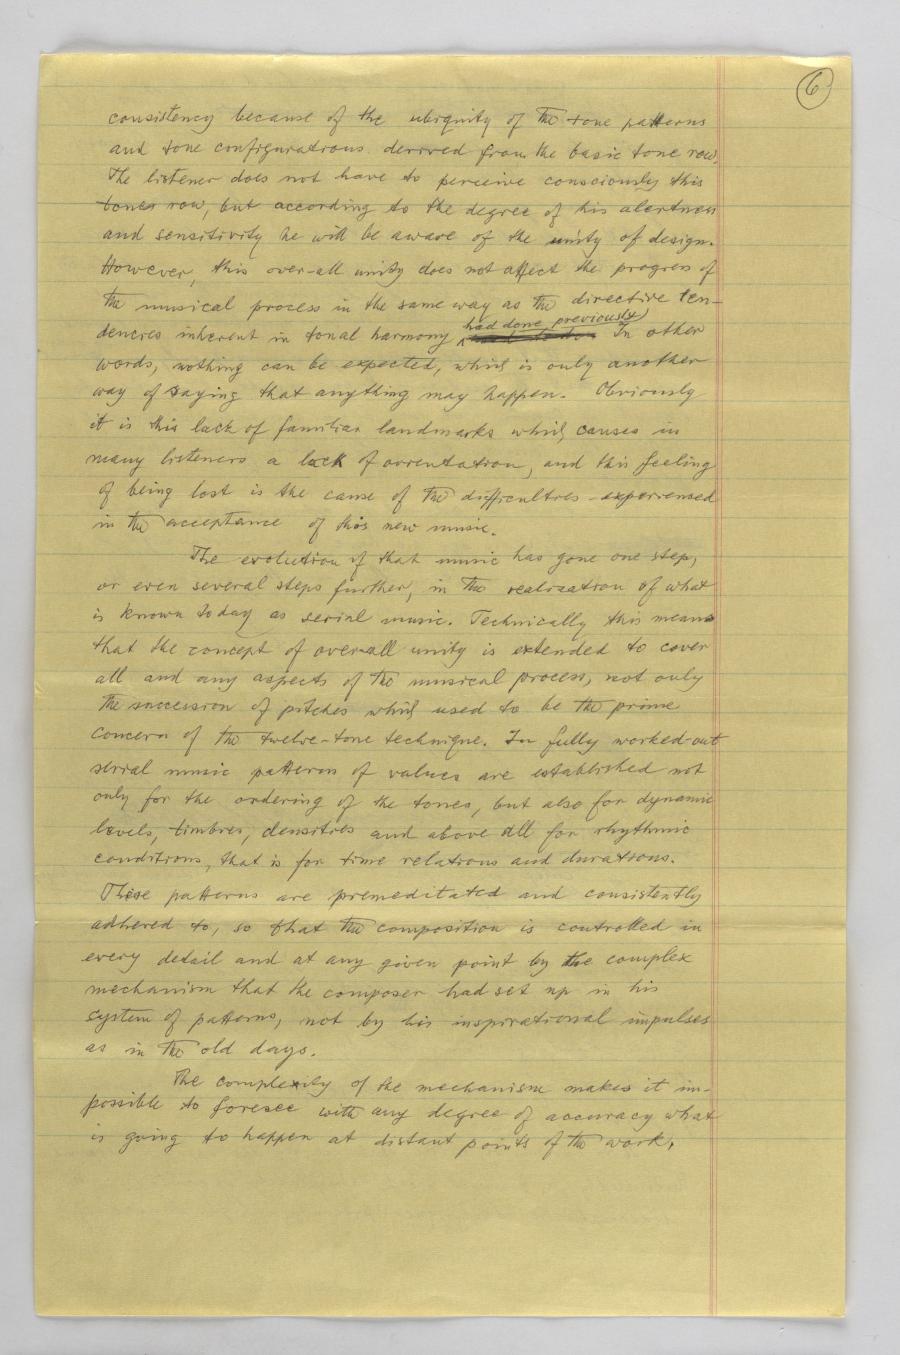 6
consistency because of the ubiquity of the tone patterns
and tone configurations derived from the basic tone row.
The listener does not have to perceive consciously this
tones row, but according to the degree of his alertness
and sensitivity he will be aware of the unity of design.
However, this over-all unity does not affect the progress of
the musical process in the same way as the directive ten-
had done previously
dencies inherent in tonal harmony In other
words, nothing can be expected, which is only another
way of saying that anything may happen. Obviously
it is this lack of familiar landmarks which causes in
many listeners a lack of orientation, and this feeling
of being lost is the cause of the difficulties experienced
in the acceptance of this new music.
The evolution of that music has gone one step,
or even several steps further, in the realization of what
is known today as serial music. Technically this means
that the concept of over-all unity is extended to cover
all and any aspects of the musical process, not only
the succession of pitches which used to be the prime
concern of the twelve-tone technique. In fully worked-out
serial music patterns of values are established not
only for the ordering of the tones, but also for dynamic
levels, timbres, densities and above all for rhythmic
conditions, that is for time relations and durations.
These patterns are premeditated and consistently
adhered to, so that the composition is controlled in
every detail and at any given point by the complex
mechanism that the composer had set up in his
system of patterns, not by his inspirational impulses
as in the old days.
The complexity of the mechanism makes it im-
possible to foresee with any degree of accuracy what
is going to happen at distant points of the work.